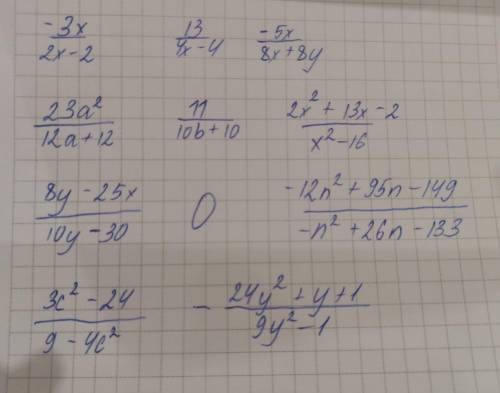 -3x/(2x-2)   13/(4x-4)   -5x/(8x+8y)
23a²/(12a+12)   11/(10b+10)   (2x²+13x-2)/(x²-16)
(8y-25x)/(10y-30)   0   (-12n²+95n-149)/(-n²+26n-133)
(3c²-24)/(9-4c²)   -(24y²+y+1)/(9y²-1)